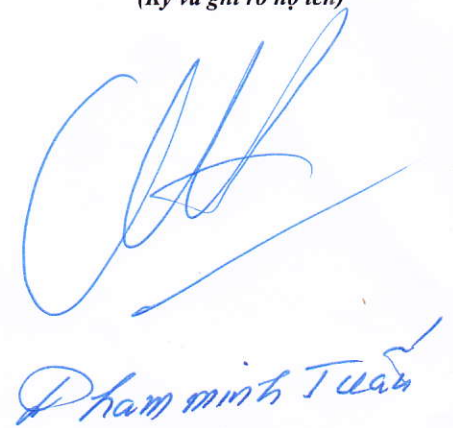 (Ký và ghi rõ họ tên)
Phạm minh Tuấn